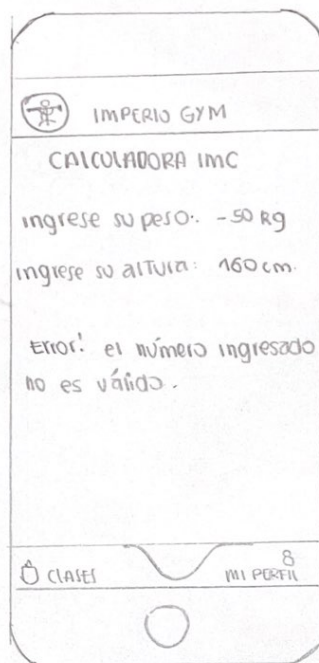 IMPERIO GYM
CALCULADORA IMC
ingrese su peso: -50 Kg
ingrese su altura: 160 cm.
Error! el número ingresado
no es válido.
CLASES
MI PERFIL